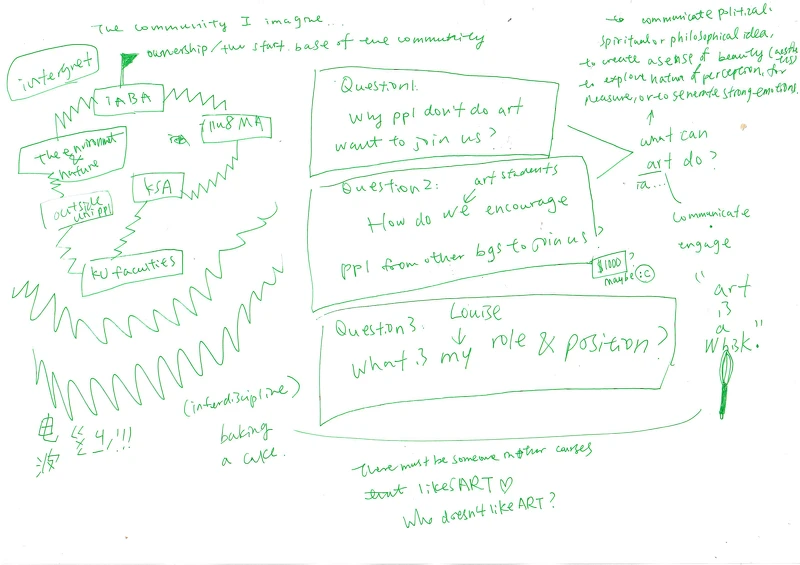 The community I imagine...
ownership/the start.base of the community
intergnet
iABA
MA
The environmet
&
nature
KSA
outside
uni ppl
KU faculties
Question1:
Why ppl don't do art
want to join us?
Question2:
art students
How do we encourage
ppl from other bgs to join us?
$1000?
maybe :c
Question3:
Louise
What is my role & position?
to communicate political.
spiritual or philosophical idea,
to create a sense of beauty (aesthe
tics)
to explore nature of perception, for
pleasure, or to generate strong emotions.
what can
art do?
communicate
engage
"art
is
a
whisk."
电
波
(interdiscipline)
baking
a cake.
there must be someone in other courses
that likes ART ♡
Who doesn't like ART?